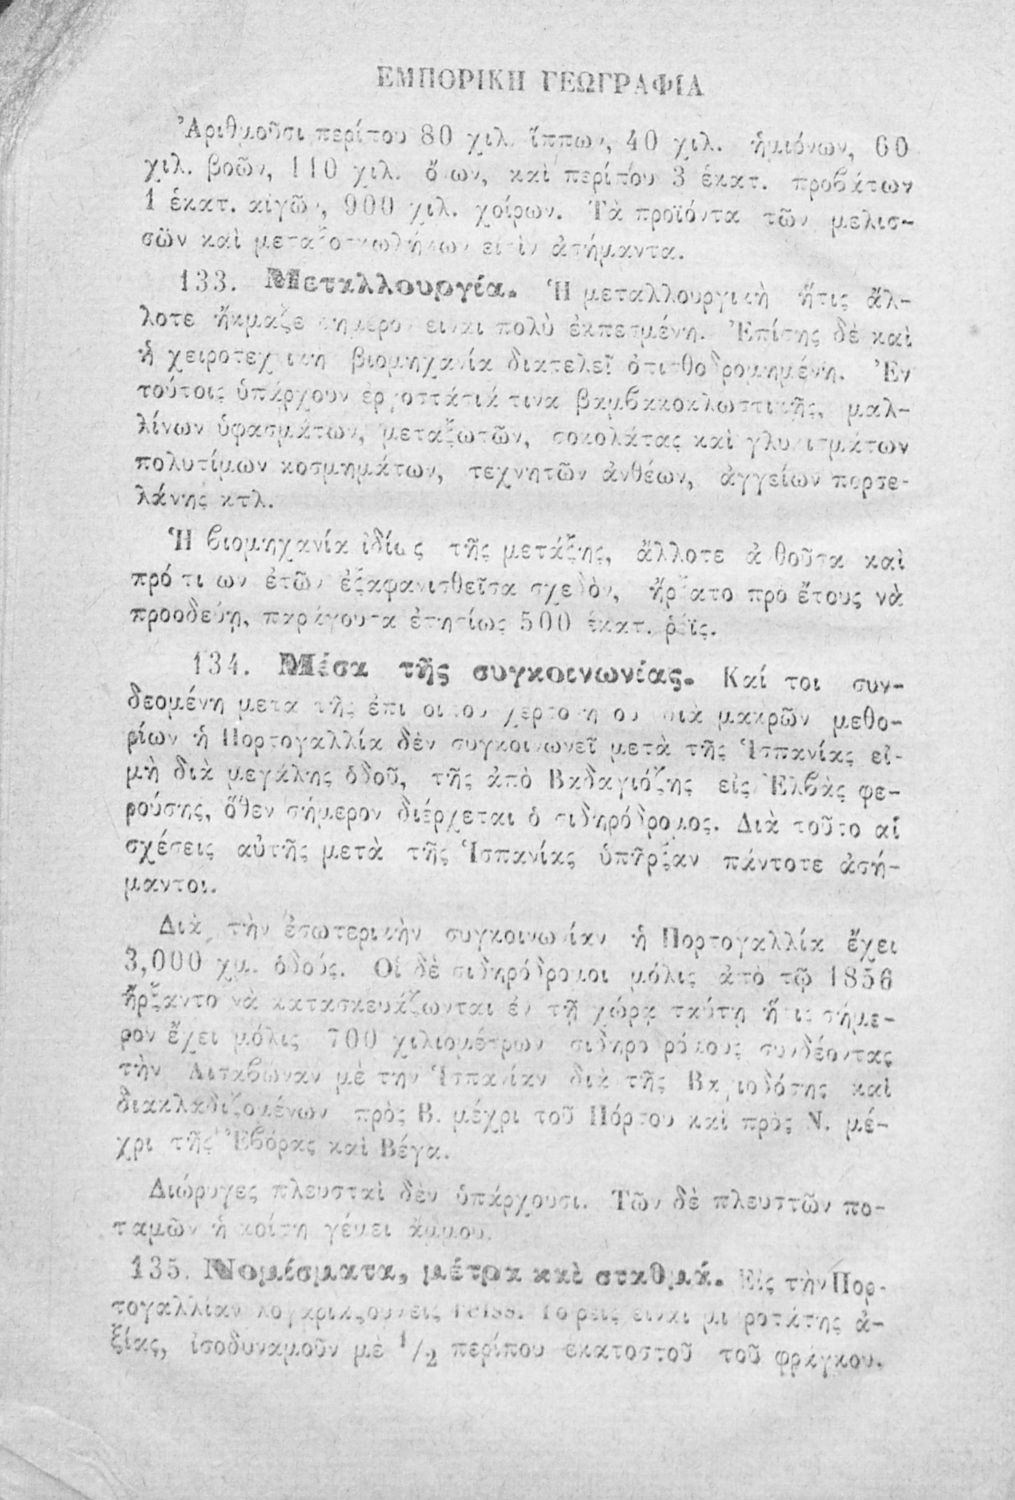 ΕΜΠΟΡΙΚΗ ΓΕΩΓΡΑΦΙΑ
Ἀριθμοῦσι περίπου 80 χιλ. ἵππων, 40 χιλ. ἡμιόνων, 60
χιλ. βοῶν, 110 χιλ. ὄνων, καὶ περίπου 3 ἑκατ. προβάτων
1 ἑκατ. αἰγῶν, 900 χιλ. χοίρων. Τὰ προϊόντα τῶν μελισ-
σῶν καὶ μεταξοσκωλήκων εἰσὶν ἀσήμαντα.
133. Μεταλλουργία. Ἡ μεταλλουργικὴ ἥτις ἄλ-
λοτε ἤκμαζε σήμερον εἶναι πολὺ ἐκπεσμένη. Ἐπίσης δὲ καὶ
ἡ χειροτεχνικη βιομηχανία διατελεῖ ὀπισθοδρομημένη. Ἐν
τούτοις ὑπάρχουν ἐργοστάσιά τινα βαμβακοκλωστικῆς, μαλ-
λίνων ὑφασμάτων, μεταξωτῶν, σοκολάτας καὶ γλυκισμάτων
πολυτίμων κοσμημάτων, τεχνητῶν ἀνθέων, ἀγγείων πορσε-
λάνης κτλ.
Ἡ βιομηχανία ἰδίως τῆς μετάξης, ἄλλοτε ἀνθοῦσα καὶ
πρό τινων ἐτῶν ἐξαφανισθεῖσα σχεδὸν, ἤρξατο πρὸ ἔτους νὰ
προοδεύῃ, παράγουσα ἐτησίως 500 ἑκατ. ῥέϊς.
134. Μέσα τῆς συγκοινωνίας. Καί τοι συν-
δεομένη μετα τῆς ἐπι διὰ μακρῶν μεθο-
ρίων ἡ Πορτογαλλία δὲν συγκοινωνεῖ μετὰ τῆς Ἱσπανίας εἰ-
μὴ διὰ μεγάλης ὁδοῦ, τῆς ἀπὸ Βαδαγιόζης εἰς Ἐλβὰς φε-
ρούσης, ὅθεν σήμερον διέρχεται ὁ σιδηρόδρομος. Διὰ τοῦτο αἱ
σχέσεις αὐτῆς μετὰ τῆς Ἱσπανίας ὑπῆρξαν πάντοτε ἀσή-
μαντοι.
Διὰ τὴν ἐσωτερικὴν συγκοινωνίαν ἡ Πορτογαλλία ἔχει
3,000 χμ. ὁδούς. Οἱ δὲ σιδηρόδρομοι μόλις ἀπὸ τῷ 1856
ἤρξαντο νὰ κατασκευάζωνται ἐν τῇ χώρᾳ ταύτῃ ἥτις σήμε-
ρον ἔχει μόλις 700 χιλιομέτρων σιδηροδρόμους συνδέοντας
τὴν Λισαβῶναν μὲ την Ἱσπανίαν διὰ τῆς καὶ
διακλαδιζομένων πρὸς Β. μέχρι τοῦ Πόρτου καὶ πρὸς Ν. μέ-
χρι τῆς Ἐβόρας καὶ Βέγα.
Διώρυγες πλευσταὶ δὲν ὑπάρχουσι. Τῶν δὲ πλευστῶν πο-
ταμῶν ἡ κοίτη γέμει ἄμμου.
135. Νομίσματα, μέτρα καὶ σταθμά. Εἰς τὴν Πορ-
τογαλλίαν λογαριάζουν εἰς ῥέϊς. Το ρεις εἶναι μικροτάτης ἀ-
ξίας, ἰσοδυναμοῦν μὲ 1/2 περίπου εκατοστοῦ τοῦ φράγκου.